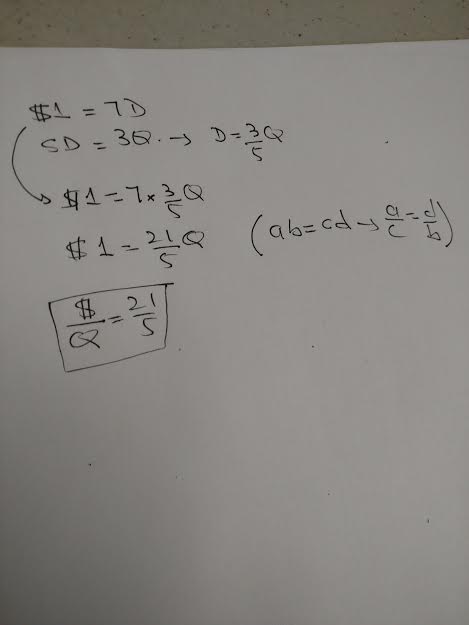 $1 = 7D
5D = 3Q → D = 3/5 Q
$1 = 7 × 3/5 Q
$1 = 21/5 Q (ab = cd → a/c = d/b)
$/Q = 21/5